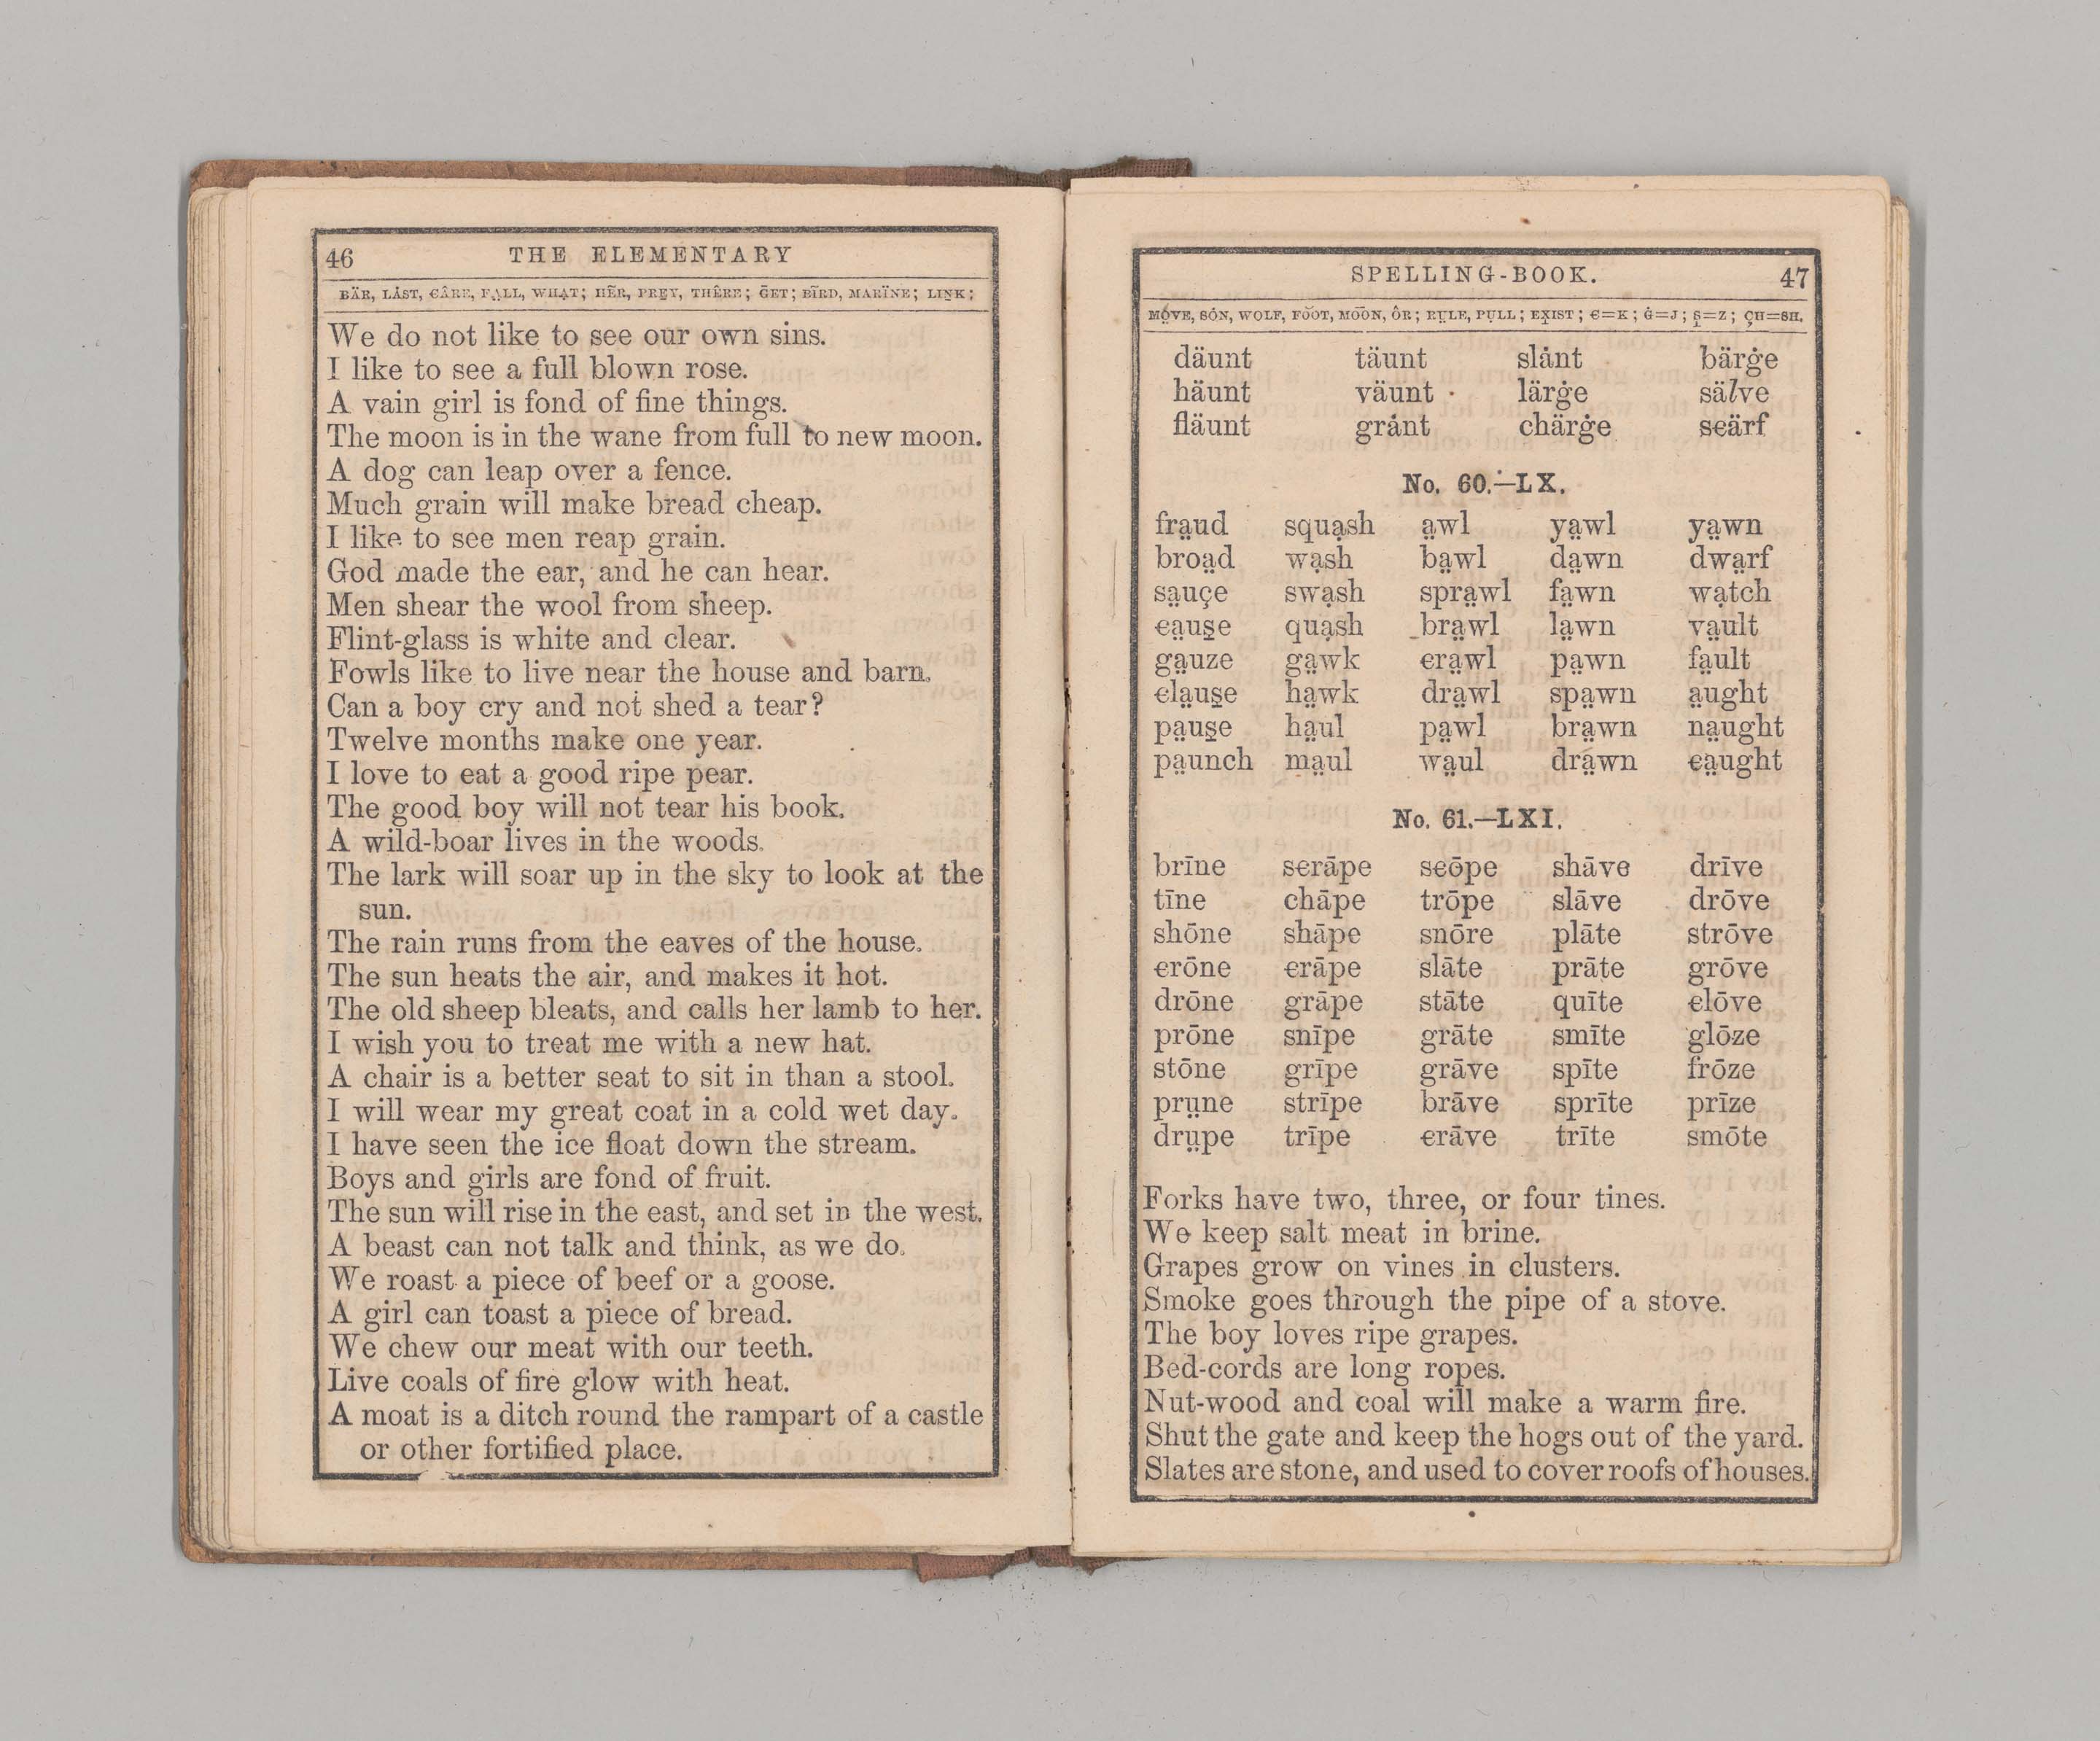 46 THE ELEMENTARY
BÄR, LȦST, CÂRE, FẠLL, WHẠT; HẼR, PREY, THÊRE; ḠET; BĨRD, MARÏNE; LINK;
We do not like to see our own sins.
I like to see a full blown rose.
A vain girl is fond of fine things.
The moon is in the wane from full to new moon.
A dog can leap over a fence.
Much grain will make bread cheap.
I like to see men reap grain.
God made the ear, and he can hear.
Men shear the wool from sheep.
Flint-glass is white and clear.
Fowls like to live near the house and barn.
Can a boy cry and not shed a tear?
Twelve months make one year.
I love to eat a good ripe pear.
The good boy will not tear his book.
A wild-boar lives in the woods.
The lark will soar up in the sky to look at the
sun.
The rain runs from the eaves of the house.
The sun heats the air, and makes it hot.
The old sheep bleats, and calls her lamb to her.
I wish you to treat me with a new hat.
A chair is a better seat to sit in than a stool.
I will wear my great coat in a cold wet day.
I have seen the ice float down the stream.
Boys and girls are fond of fruit.
The sun will rise in the east, and set in the west.
A beast can not talk and think, as we do.
We roast a piece of beef or a goose.
A girl can toast a piece of bread.
We chew our meat with our teeth.
Live coals of fire glow with heat.
A moat is a ditch round the rampart of a castle
or other fortified place.
SPELLING-BOOK. 47
MỌVE, SȮN, WOLF, FO͝OT, MO͞ON, ÔR; RṲLE, PỤLL; EX̱IST; Є=K; Ġ=J; S̱=Z; ÇH=SH.
däunt täunt slȧnt bärġe
häunt väunt lärġe sälve
fläunt grȧnt chärġe sєärf
No. 60.—LX.
fra̤ud squạsh a̤wl ya̤wl ya̤wn
broa̤d wạsh ba̤wl da̤wn dwa̤rf
sa̤uçe swạsh spra̤wl fa̤wn wạtch
єa̤us̱e quạsh bra̤wl la̤wn va̤ult
ga̤uze ga̤wk єra̤wl pa̤wn fa̤ult
єla̤us̱e ha̤wk dra̤wl spa̤wn a̤ught
pa̤us̱e ha̤ul pa̤wl bra̤wn na̤ught
pa̤unch ma̤ul wa̤ul dra̤wn єa̤ught
No. 61.—LXI.
brīne sєrāpe sєōpe shāve drīve
tīne chāpe trōpe slāve drōve
shōne shāpe snōre plāte strōve
єrōne єrāpe slāte prāte grōve
drōne grāpe stāte quīte єlōve
prōne snīpe grāte smīte glōze
stōne grīpe grāve spīte frōze
prṳne strīpe brāve sprīte prīze
drṳpe trīpe єrāve trīte smōte
Forks have two, three, or four tines.
We keep salt meat in brine.
Grapes grow on vines in clusters.
Smoke goes through the pipe of a stove.
The boy loves ripe grapes.
Bed-cords are long ropes.
Nut-wood and coal will make a warm fire.
Shut the gate and keep the hogs out of the yard.
Slates are stone, and used to cover roofs of houses.